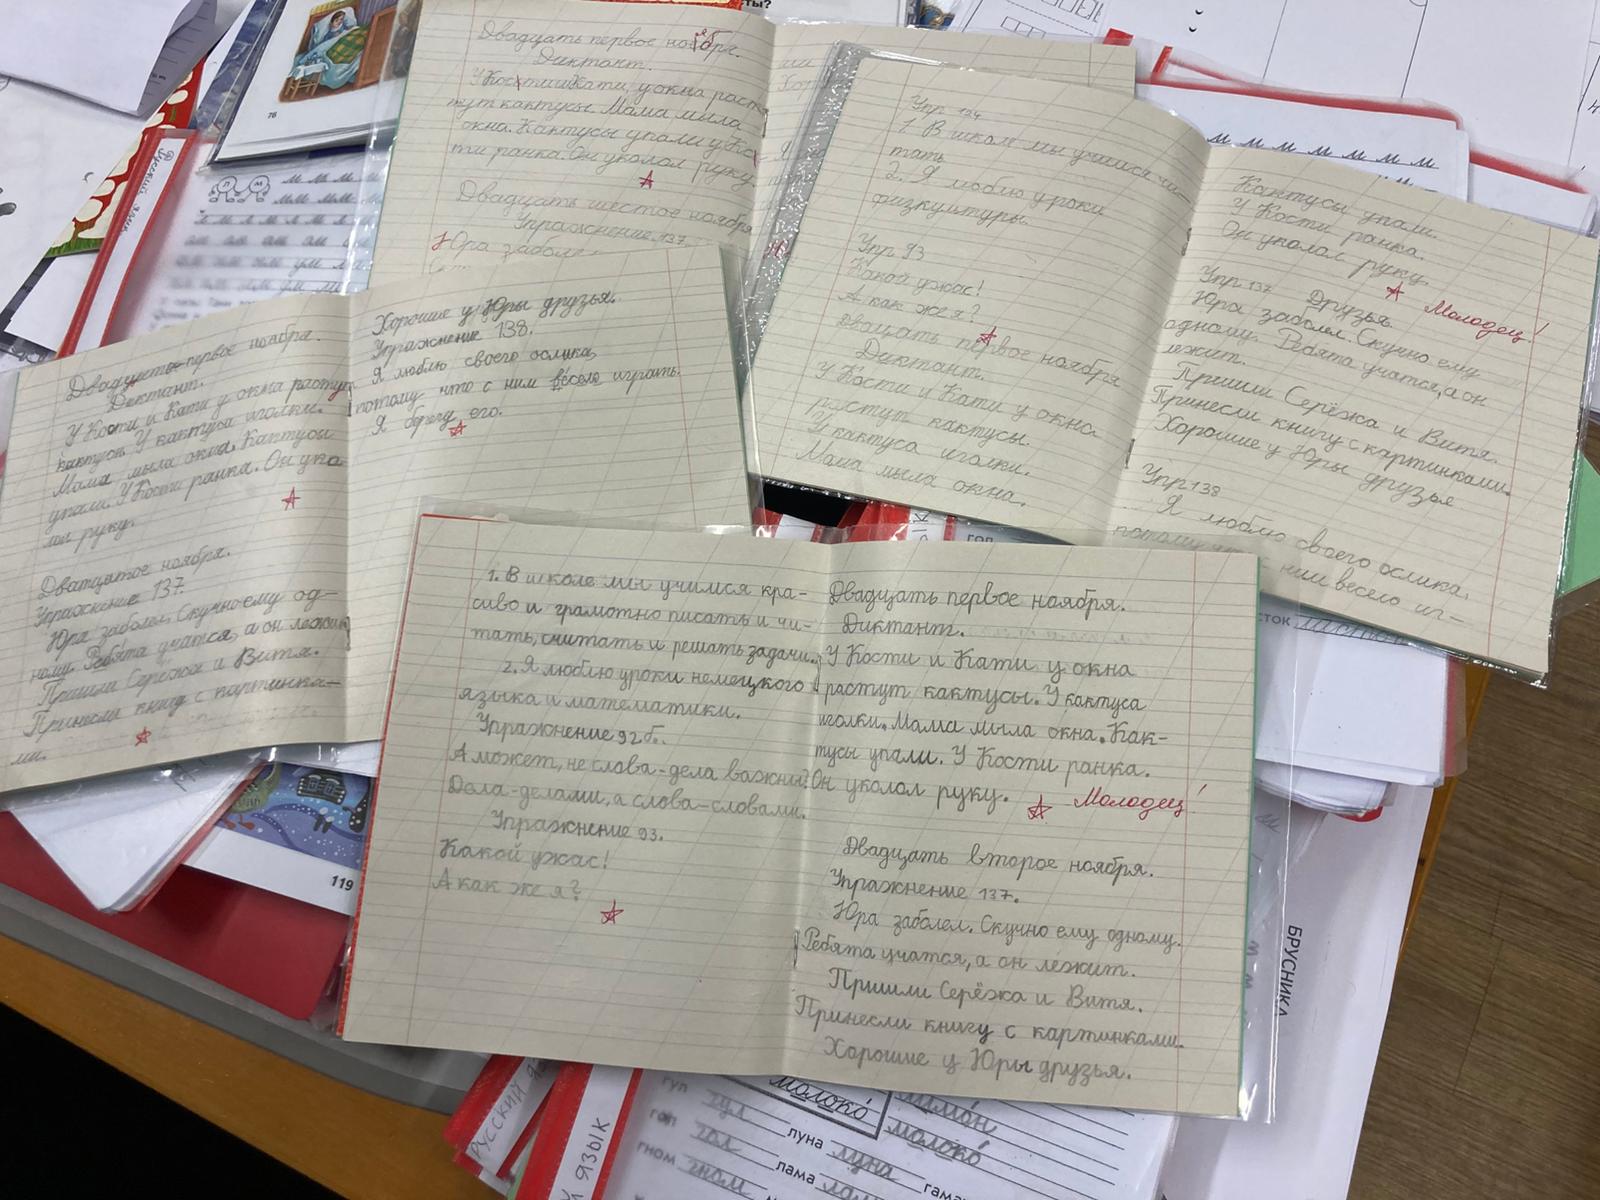 Двадцать первое ноября.
Диктант.
У Кости и Кати у окна раст
тут кактусы. Мама мыла
окна. Кактусы упали у Кос
ти ранка. Он уколол руку.
Двадцать шестое ноября
Упражнение 137.
Юра заболе
76
Русский язык
Упр 124
1. В школе мы учимся чи-
тать
2. Я люблю уроки
физкултуры.
Упр 93
Какой ужас!
А как же я?
Двацать первое ноября
Диктант.
У Кости и Кати у окна
растут кактусы.
У кактуса иголки.
Мама мыла окна.
Кактусы упали.
У Кости ранка.
Он уколол руку.
Молодец!
Упр 137 Друзья.
Юра заболел. Скучно ему
одному. Ребята учатся, а он
лежит.
Пришли Серёжа и Витя.
Принесли книгу с картинками.
Хорошие у Юры друзья
Упр 138
Я люблю своего ослика,
потому что с ним весело иг-
Двадцатое первое ноября.
Диктант.
У Кости и Кати у окна растут
кактуси. У кактуса иголки.
Мама мыла окна. Кактуси
упали. У Кости ранка. Он уко
лол руку.
Дватцатое ноября.
Упражнение 137.
Юра заболел. Скучно ему од-
ному. Ребята учатся, а он лежит
Пришли Серёжа и Витя.
Принесли книгу с картинка-
ми.
Хорошие у Юры друзья.
Упражнение 138.
Я люблю своего ослика,
потому что с ним весело играть.
Я берегу его.
1. В школе мы учимся кра-
сиво и грамотно писать и чи-
тать, считать и решать задачи.
2. Я люблю уроки немецкого
языка и математики.
Упражнение 92б.
А может, не слова-дела важны?
Дела-делами, а слова-словами.
Упражнение 93.
Какой ужас!
А как же я?
Двадцать первое ноября.
Диктант.
У Кости и Кати у окна
растут кактусы. У кактуса
иголки. Мама мыла окна. Как-
тусы упали. У Кости ранка.
Он уколол руку.
Молодец!
Двадцать второе ноября.
Упражнение 137.
Юра заболел. Скучно ему одному.
Ребята учатся, а он лежит.
Пришли Серёжа и Витя.
Принесли книгу с картинками.
Хорошие у Юры друзья.
119
БРУСНИКА
РУССКИЙ ЯЗ
ЯЗЫК
молоко́
лимо́н
молоко́
гул гул
гол гол
гном гном
луна луна
лама
гама